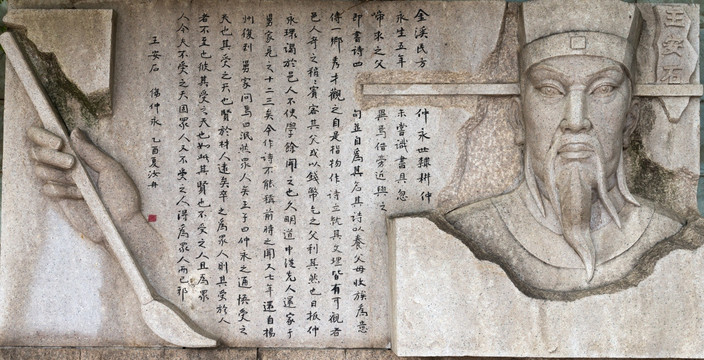 王安石
金溪民方仲永世隸耕仲
永生五年未嘗識書具忽
啼求之父異焉借旁近與之
即書詩四句並自爲其名其詩以養父母收族爲意
傳一鄉秀才觀之自是指物作詩立就其文理皆有可觀者
邑人奇之稍稍賓客其父或以錢幣乞之父利其然也日扳仲
永環謁於邑人不使學餘聞之也久明道中從先人還家于
舅家見之十二三矣令作詩不能稱前時之聞又七年還自揚
州復到舅家問焉曰泯然眾人矣王子曰仲永之通悟受之
天也其受之天也賢於材人遠矣卒之爲眾人則其受於人
者不至也彼其受之天也如此其賢也不受之人且爲眾
人今夫不受之天固眾人又不受之人得爲眾人而已耶
王安石 傷仲永 乙酉夏汝舟